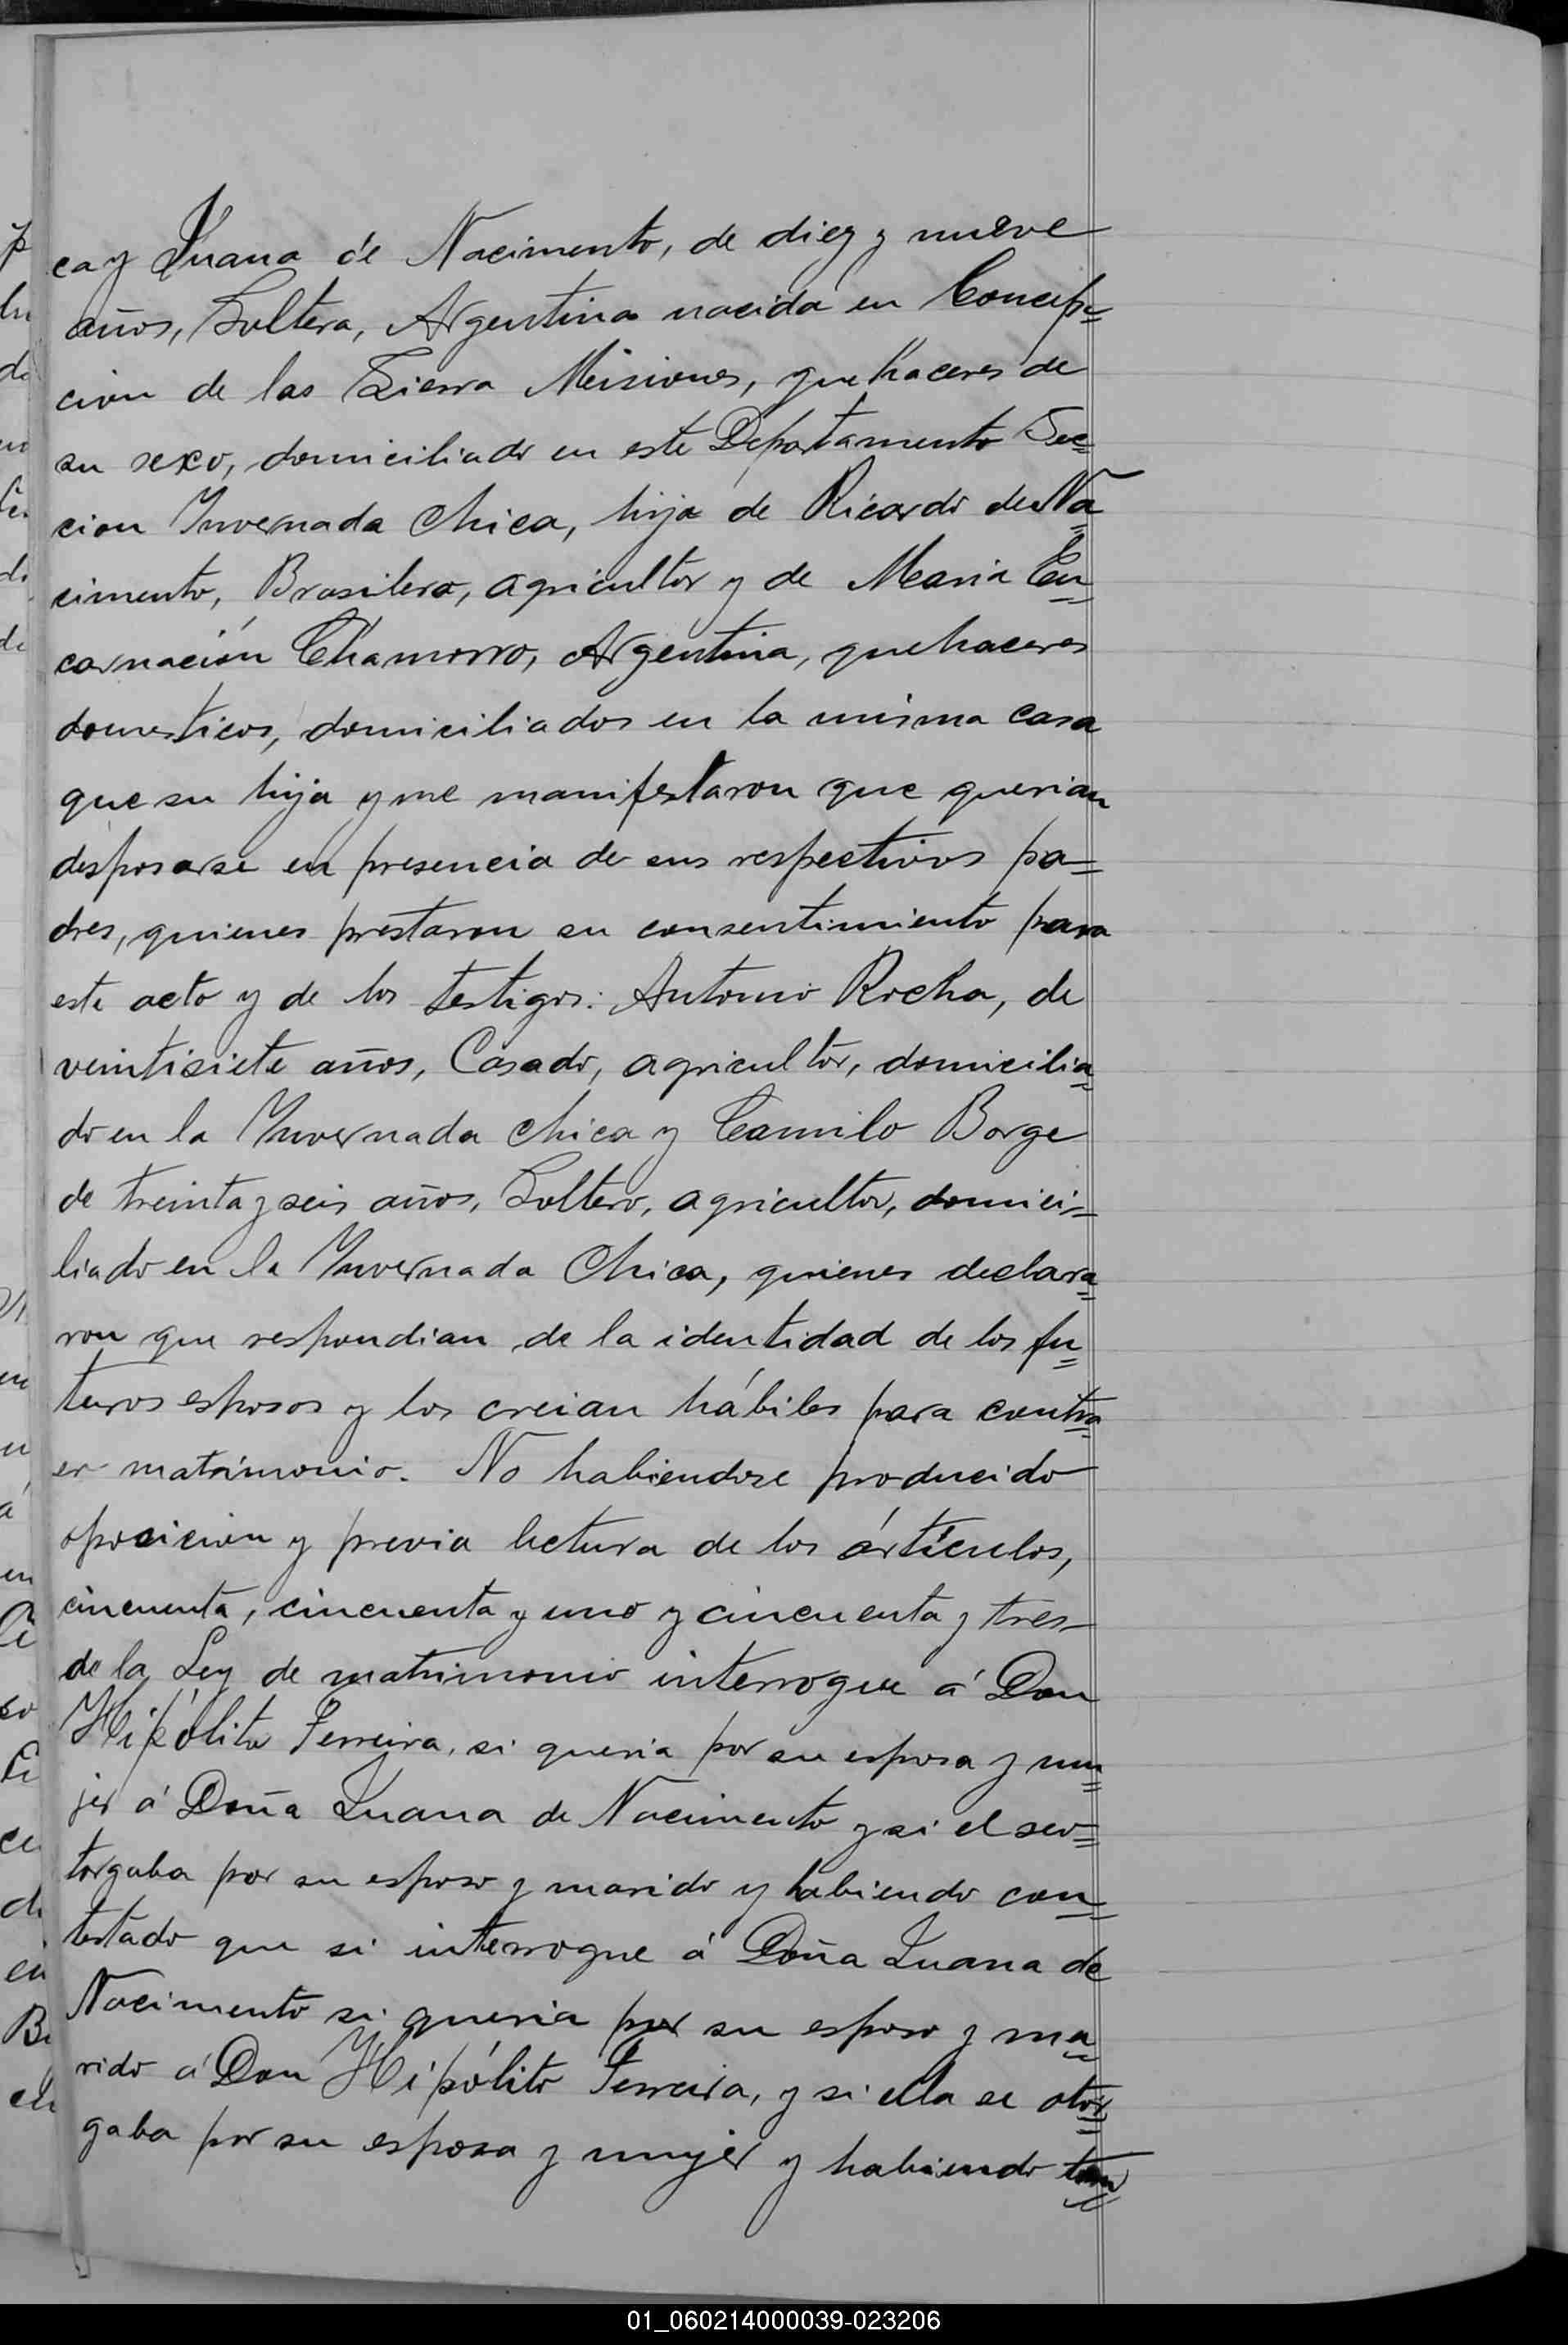 ca y Juana de Nacimento, de diez y nueve
años, Soltera, Argentina nacida en Concep=
cion de las Sierra Misiones, que haceres de
su sexo, domiciliado en este Departamento Sec=
cion Invernada Chica, hija de Ricardo de Na=
cimento, Brasilero, agricultor y de Maria En=
carnación Chamorro, Argentina, quehaceres
domesticos, domiciliados en la misma casa
que su hija y me manifestaron que querian
desposarse en presencia de sus respectivos pa=
dres, quienes prestaron su consentimiento para
este acto y de los testigos: Antonio Rocha, de
veintisiete años, Casado, agricultor, domicilia=
do en la Invernada Chica y Camilo Borge
de treinta y seis años, Soltero, agricultor, domici=
liado en la Invernada Chica, quienes declara=
ron que respondian de la identidad de los fu=
turos esposos y los creian hábiles para contra=
er matrimonio. No habiendose producido
oposicion y previa lectura de los artículos,
cincuenta, cincuenta y uno y cincuenta y tres
de la Ley de matrimonio interrogue á Don
Hipólito Ferreira, si queria por su esposa y mu=
jer á Doña Juana de Nacimento y si el se o=
torgaba por su esposo y marido y habiendo con=
testado que si interrogue á Doña Juana de
Nacimento si queria por su esposo y ma=
rido á Don Hipólito Ferreira, y si ella se otor=
gaba por su esposa y mujer y habiendo
01_060214000039-023206